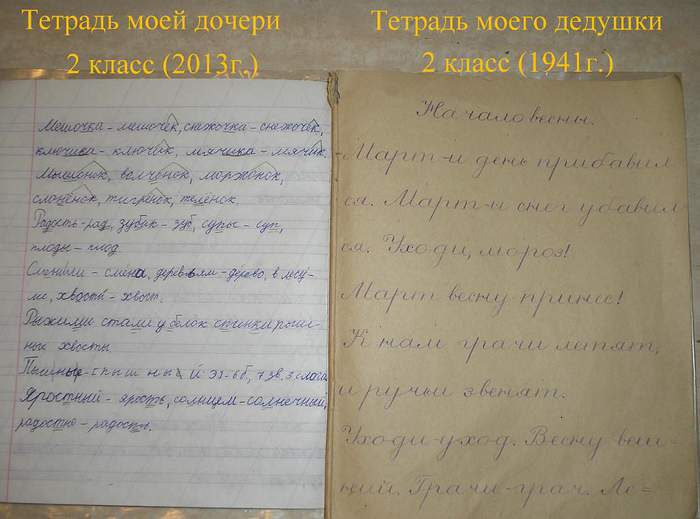 Тетрадь моей дочери
2 класс (2013г.)
Тетрадь моего дедушки
2 класс (1941г.)
Мешочка – мешочек, снежочка – снежочек,
ключика – ключик, мячика – мячик.
Мышонок, волчонок, моржонок,
слонёнок, тигрёнок, телёнок.
Радость – рад, зубок – зуб, супы – суп,
плоды – плод.
– смена, деревьям – дерево, в лесу –
хвосты – хвост.
Рыжими стали у белок спинки
ные хвосты.
Пышные –
Яростный – ярость, солнцем – солнечный,
радостно – радость.
Начало весны.
Март – и день прибавил
ся. Март – и снег убавил
ся. Уходи, мороз!
Март весну принёс!
К нам грачи летят,
и ручьи звенят.
Уходи – уход. Весну – весен
ний. Грачи – грач. Ле=